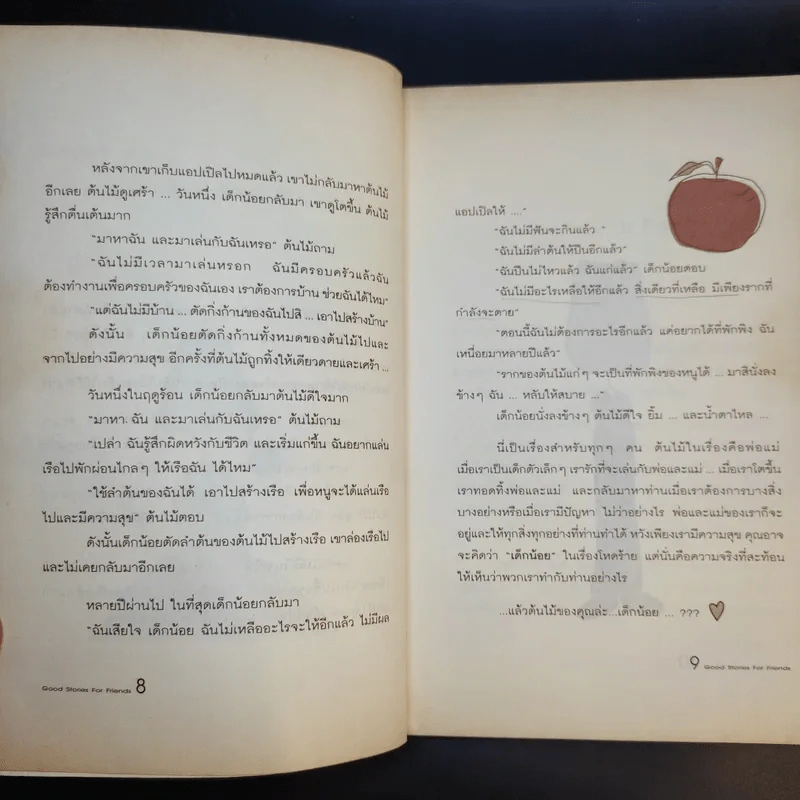 หลังจากเขาเก็บแอปเปิลไปหมดแล้ว เขาไม่กลับมาหาต้นไม้
อีกเลย ต้นไม้ดูเศร้า ... วันหนึ่ง เด็กน้อยกลับมา เขาดูโตขึ้น ต้นไม้
รู้สึกตื่นเต้นมาก
"มาหาฉัน และมาเล่นกับฉันเหรอ" ต้นไม้ถาม
"ฉันไม่มีเวลามาเล่นหรอก ฉันมีครอบครัวแล้วฉัน
ต้องทำงานเพื่อครอบครัวของฉันเอง เราต้องการบ้าน ช่วยฉันได้ไหม"
"แต่ฉันไม่มีบ้าน ... ตัดกิ่งก้านของฉันไปสิ ... เอาไปสร้างบ้าน"
ดังนั้น เด็กน้อยตัดกิ่งก้านทั้งหมดของต้นไม้ไปและ
จากไปอย่างมีความสุข อีกครั้งที่ต้นไม้ถูกทิ้งให้เดียวดายและเศร้า ...
วันหนึ่งในฤดูร้อน เด็กน้อยกลับมาต้นไม้ดีใจมาก
"มาหา ฉัน และมาเล่นกับฉันเหรอ" ต้นไม้ถาม
"เปล่า ฉันรู้สึกผิดหวังกับชีวิต และเริ่มแก่ขึ้น ฉันอยากแล่น
เรือไปพักผ่อนไกลๆ ให้เรือฉัน ได้ไหม"
"ใช้ลำต้นของฉันได้ เอาไปสร้างเรือ เพื่อหนูจะได้แล่นเรือ
ไปและมีความสุข" ต้นไม้ตอบ
ดังนั้นเด็กน้อยตัดลำต้นของต้นไม้ไปสร้างเรือ เขาล่องเรือไป
และไม่เคยกลับมาอีกเลย
หลายปีผ่านไป ในที่สุดเด็กน้อยกลับมา
"ฉันเสียใจ เด็กน้อย ฉันไม่เหลืออะไรจะให้อีกแล้ว ไม่มีผล
Good Stories For Friends 8
แอปเปิลให้ ...."
"ฉันไม่มีฟันจะกินแล้ว "
"ฉันไม่มีลำต้นให้ปีนอีกแล้ว"
"ฉันปีนไม่ไหวแล้ว ฉันแก่แล้ว" เด็กน้อยตอบ
"ฉันไม่มีอะไรเหลือให้อีกแล้ว สิ่งเดียวที่เหลือ มีเพียงรากที่
กำลังจะตาย"
"ตอนนี้ฉันไม่ต้องการอะไรอีกแล้ว แค่อยากได้ที่พักพิง ฉัน
เหนื่อยมาหลายปีแล้ว"
"รากของต้นไม้แก่ๆ จะเป็นที่พักพิงของหนูได้ ... มาสินั่งลง
ข้างๆ ฉัน ... หลับให้สบาย ..."
เด็กน้อยนั่งลงข้างๆ ต้นไม้ดีใจ ยิ้ม ... และน้ำตาไหล ...
นี่เป็นเรื่องสำหรับทุกๆ คน ต้นไม้ในเรื่องคือพ่อแม่
เมื่อเราเป็นเด็กตัวเล็กๆ เรารักที่จะเล่นกับพ่อและแม่ ... เมื่อเราโตขึ้น
เราทอดทิ้งพ่อและแม่ และกลับมาหาท่านเมื่อเราต้องการบางสิ่ง
บางอย่างหรือเมื่อเรามีปัญหา ไม่ว่าอย่างไร พ่อและแม่ของเราก็จะ
อยู่และให้ทุกสิ่งทุกอย่างที่ท่านทำได้ หวังเพียงเรามีความสุข คุณอาจ
จะคิดว่า "เด็กน้อย" ในเรื่องโหดร้าย แต่นั่นคือความจริงที่สะท้อน
ให้เห็นว่าพวกเราทำกับท่านอย่างไร
...แล้วต้นไม้ของคุณล่ะ...เด็กน้อย ... ???
9 Good Stories For Friends